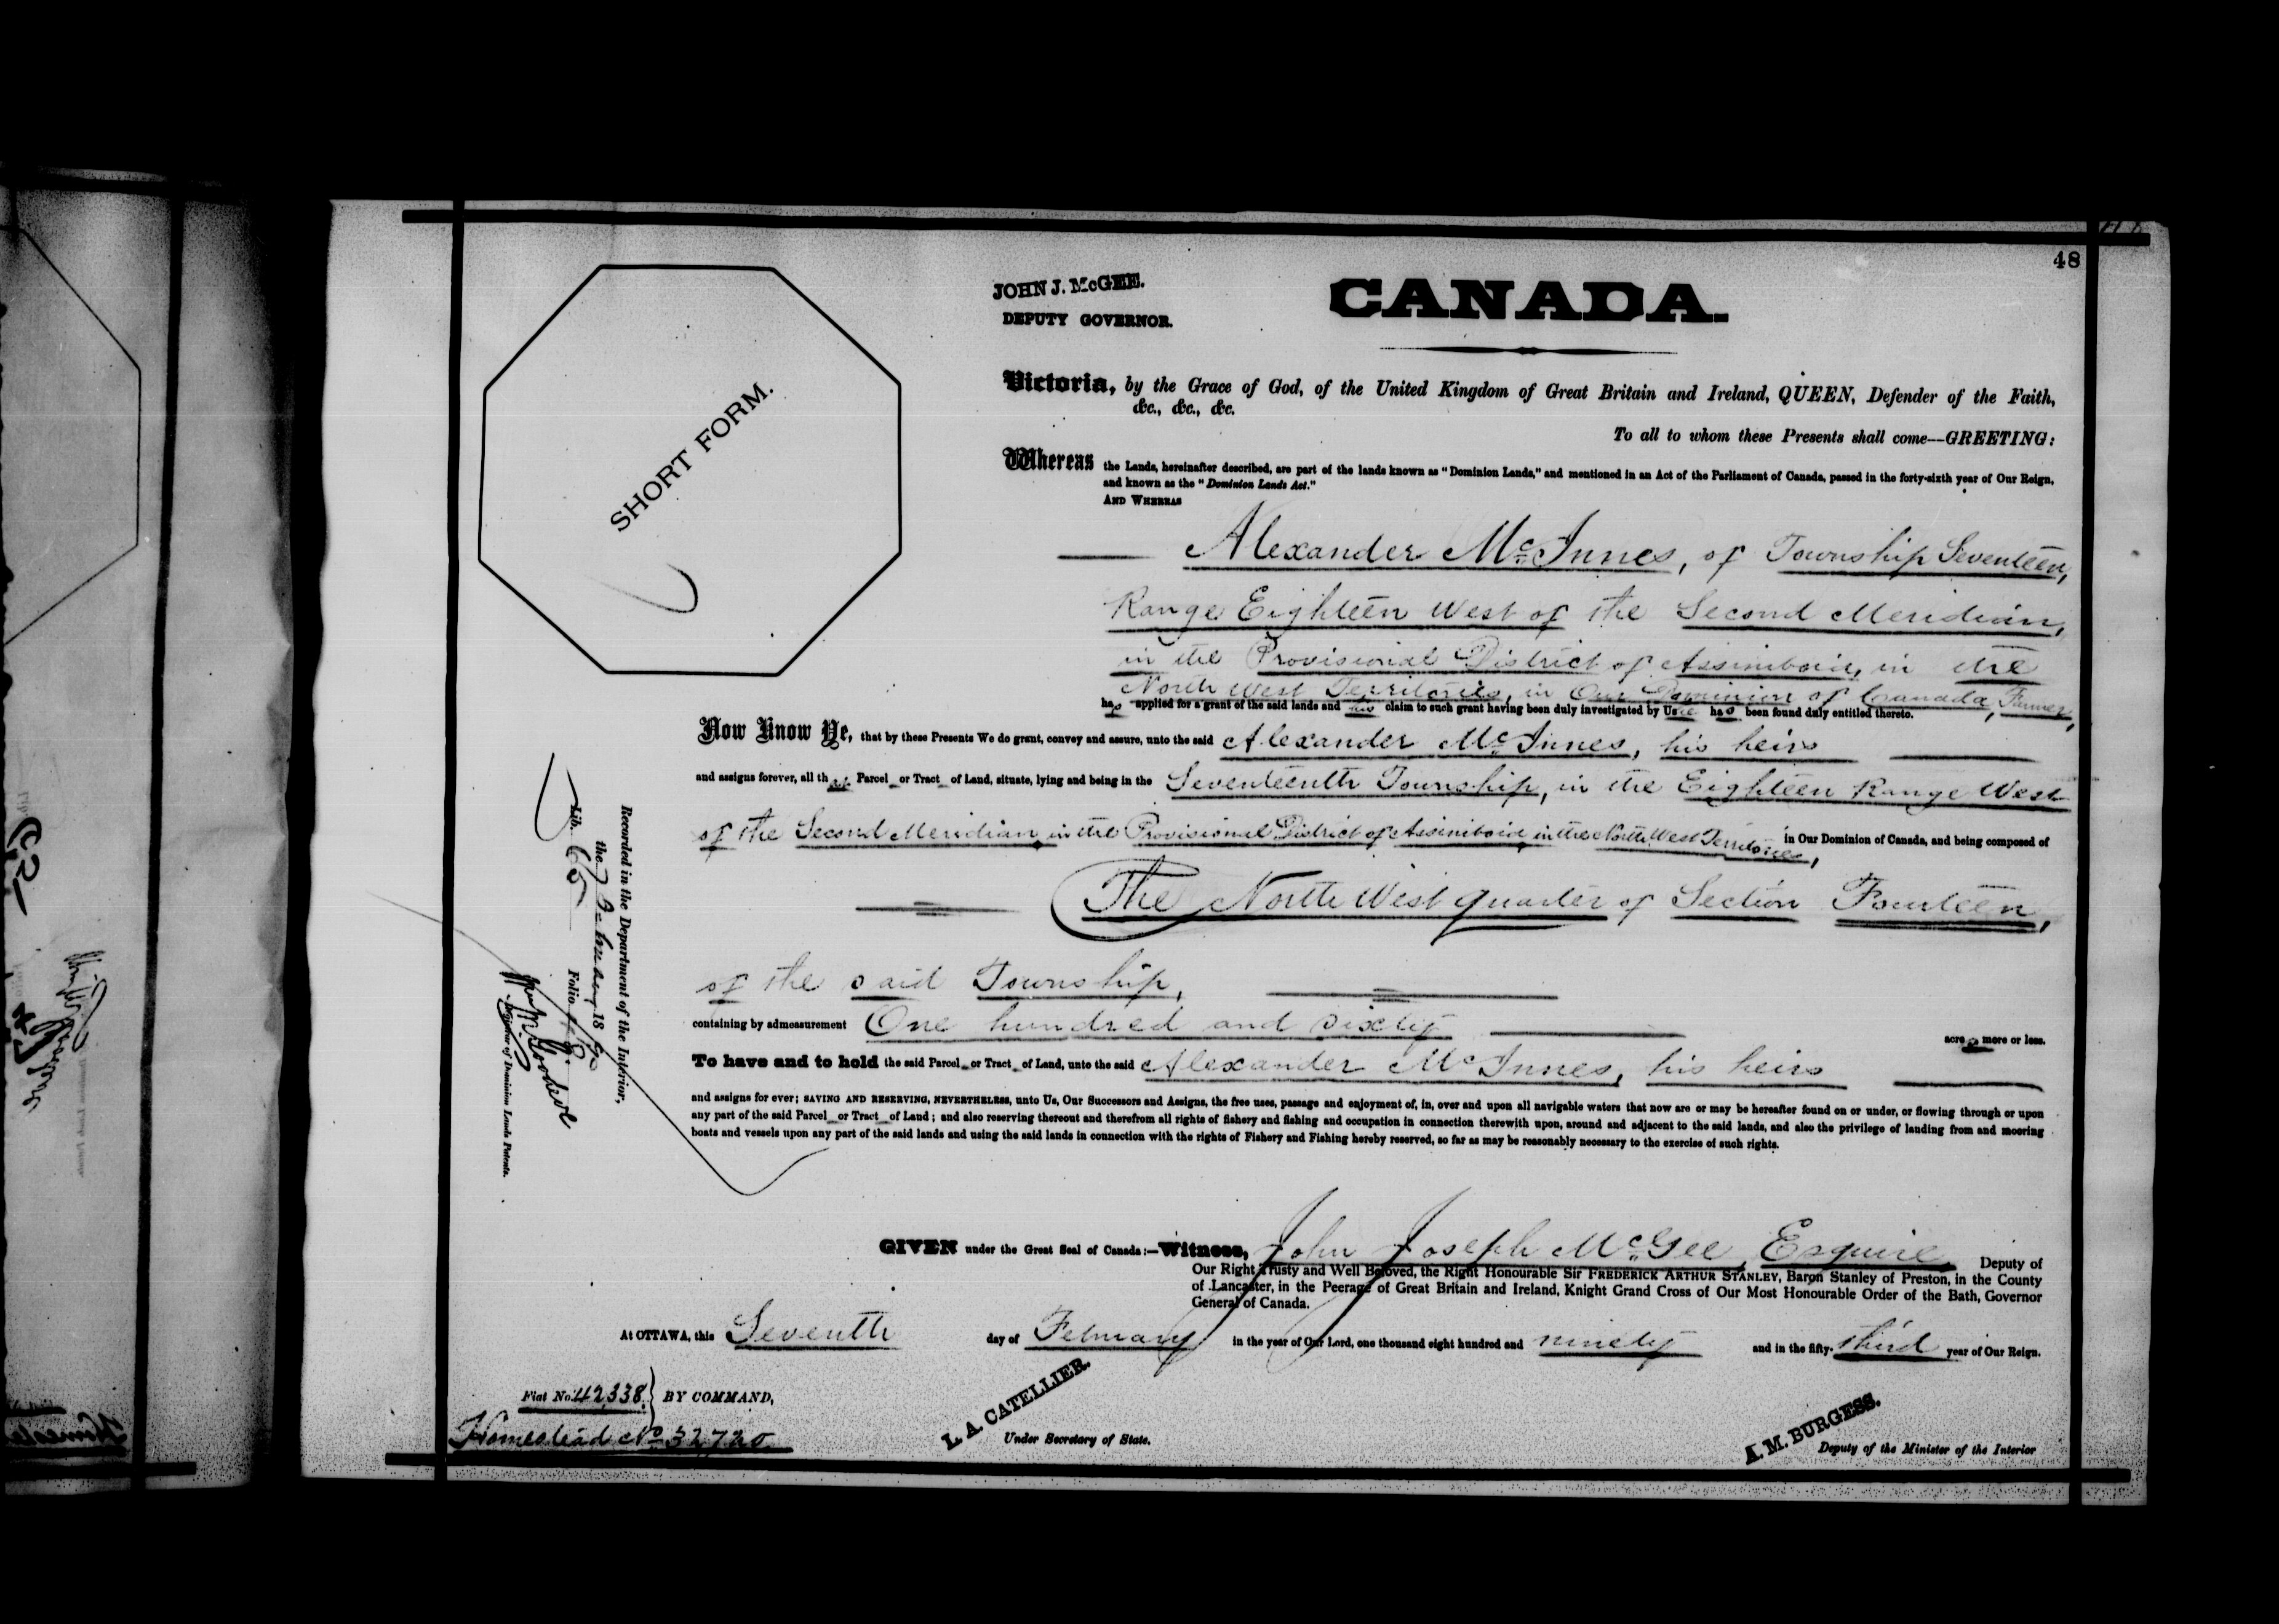 48
JOHN J. McGEE.
DEPUTY GOVERNOR.
CANADA.
SHORT FORM.
Victoria, by the Grace of God, of the United Kingdom of Great Britain and Ireland, QUEEN, Defender of the Faith,
&c., &c., &c.
To all to whom these Presents shall come—GREETING:
Whereas the Lands, hereinafter described, are part of the lands known as "Dominion Lands," and mentioned in an Act of the Parliament of Canada, passed in the forty-sixth year of Our Reign,
and known as the "Dominion Lands Act."
AND WHEREAS
Alexander McInnes, of Township Seventeen,
Range Eighteen West of the Second Meridian,
in the Provisional District of Assiniboia, in the
North West Territories, in Our Dominion of Canada, Farmer,
has applied for a grant of the said lands and his claim to such grant having been duly investigated by Us he has been found duly entitled thereto.
Now Know Ye, that by these Presents We do grant, convey and assure, unto the said Alexander McInnes, his heirs
and assigns forever, all that Parcel or Tract of Land, situate, lying and being in the Seventeenth Township, in the Eighteen Range West
of the Second Meridian in the Provisional District of Assiniboia in the North West Territories, in Our Dominion of Canada, and being composed of
The North West quarter of Section Fourteen,
of the said Township,
containing by admeasurement One hundred and sixty acres more or less.
To have and to hold the said Parcel or Tract of Land, unto the said Alexander McInnes, his heirs
and assigns for ever; SAVING AND RESERVING, NEVERTHELESS, unto Us, Our Successors and Assigns, the free uses, passage and enjoyment of, in, over and upon all navigable waters that now are or may be hereafter found on or under, or flowing through or upon
any part of the said Parcel or Tract of Land; and also reserving thereout and therefrom all rights of fishery and fishing and occupation in connection therewith upon, around and adjacent to the said lands, and also the privilege of landing from and mooring
boats and vessels upon any part of the said lands and using the said lands in connection with the rights of Fishery and Fishing hereby reserved, so far as may be reasonably necessary to the exercise of such rights.
Recorded in the Department of the Interior,
the 7 February 1890
Lib. 65 Folio 48
Registrar of Dominion Lands Patents.
GIVEN under the Great Seal of Canada:—Witness, John Joseph McGee, Esquire, Deputy of
Our Right Trusty and Well Beloved, the Right Honourable Sir FREDERICK ARTHUR STANLEY, Baron Stanley of Preston, in the County
of Lancaster, in the Peerage of Great Britain and Ireland, Knight Grand Cross of Our Most Honourable Order of the Bath, Governor
General of Canada.
At OTTAWA, this Seventh day of February in the year of Our Lord, one thousand eight hundred and ninety and in the fifty-third year of Our Reign.
Fiat No. 42338. BY COMMAND,
Homestead No 32720
L. A. CATELLIER.
Under Secretary of State.
A. M. BURGESS.
Deputy of the Minister of the Interior